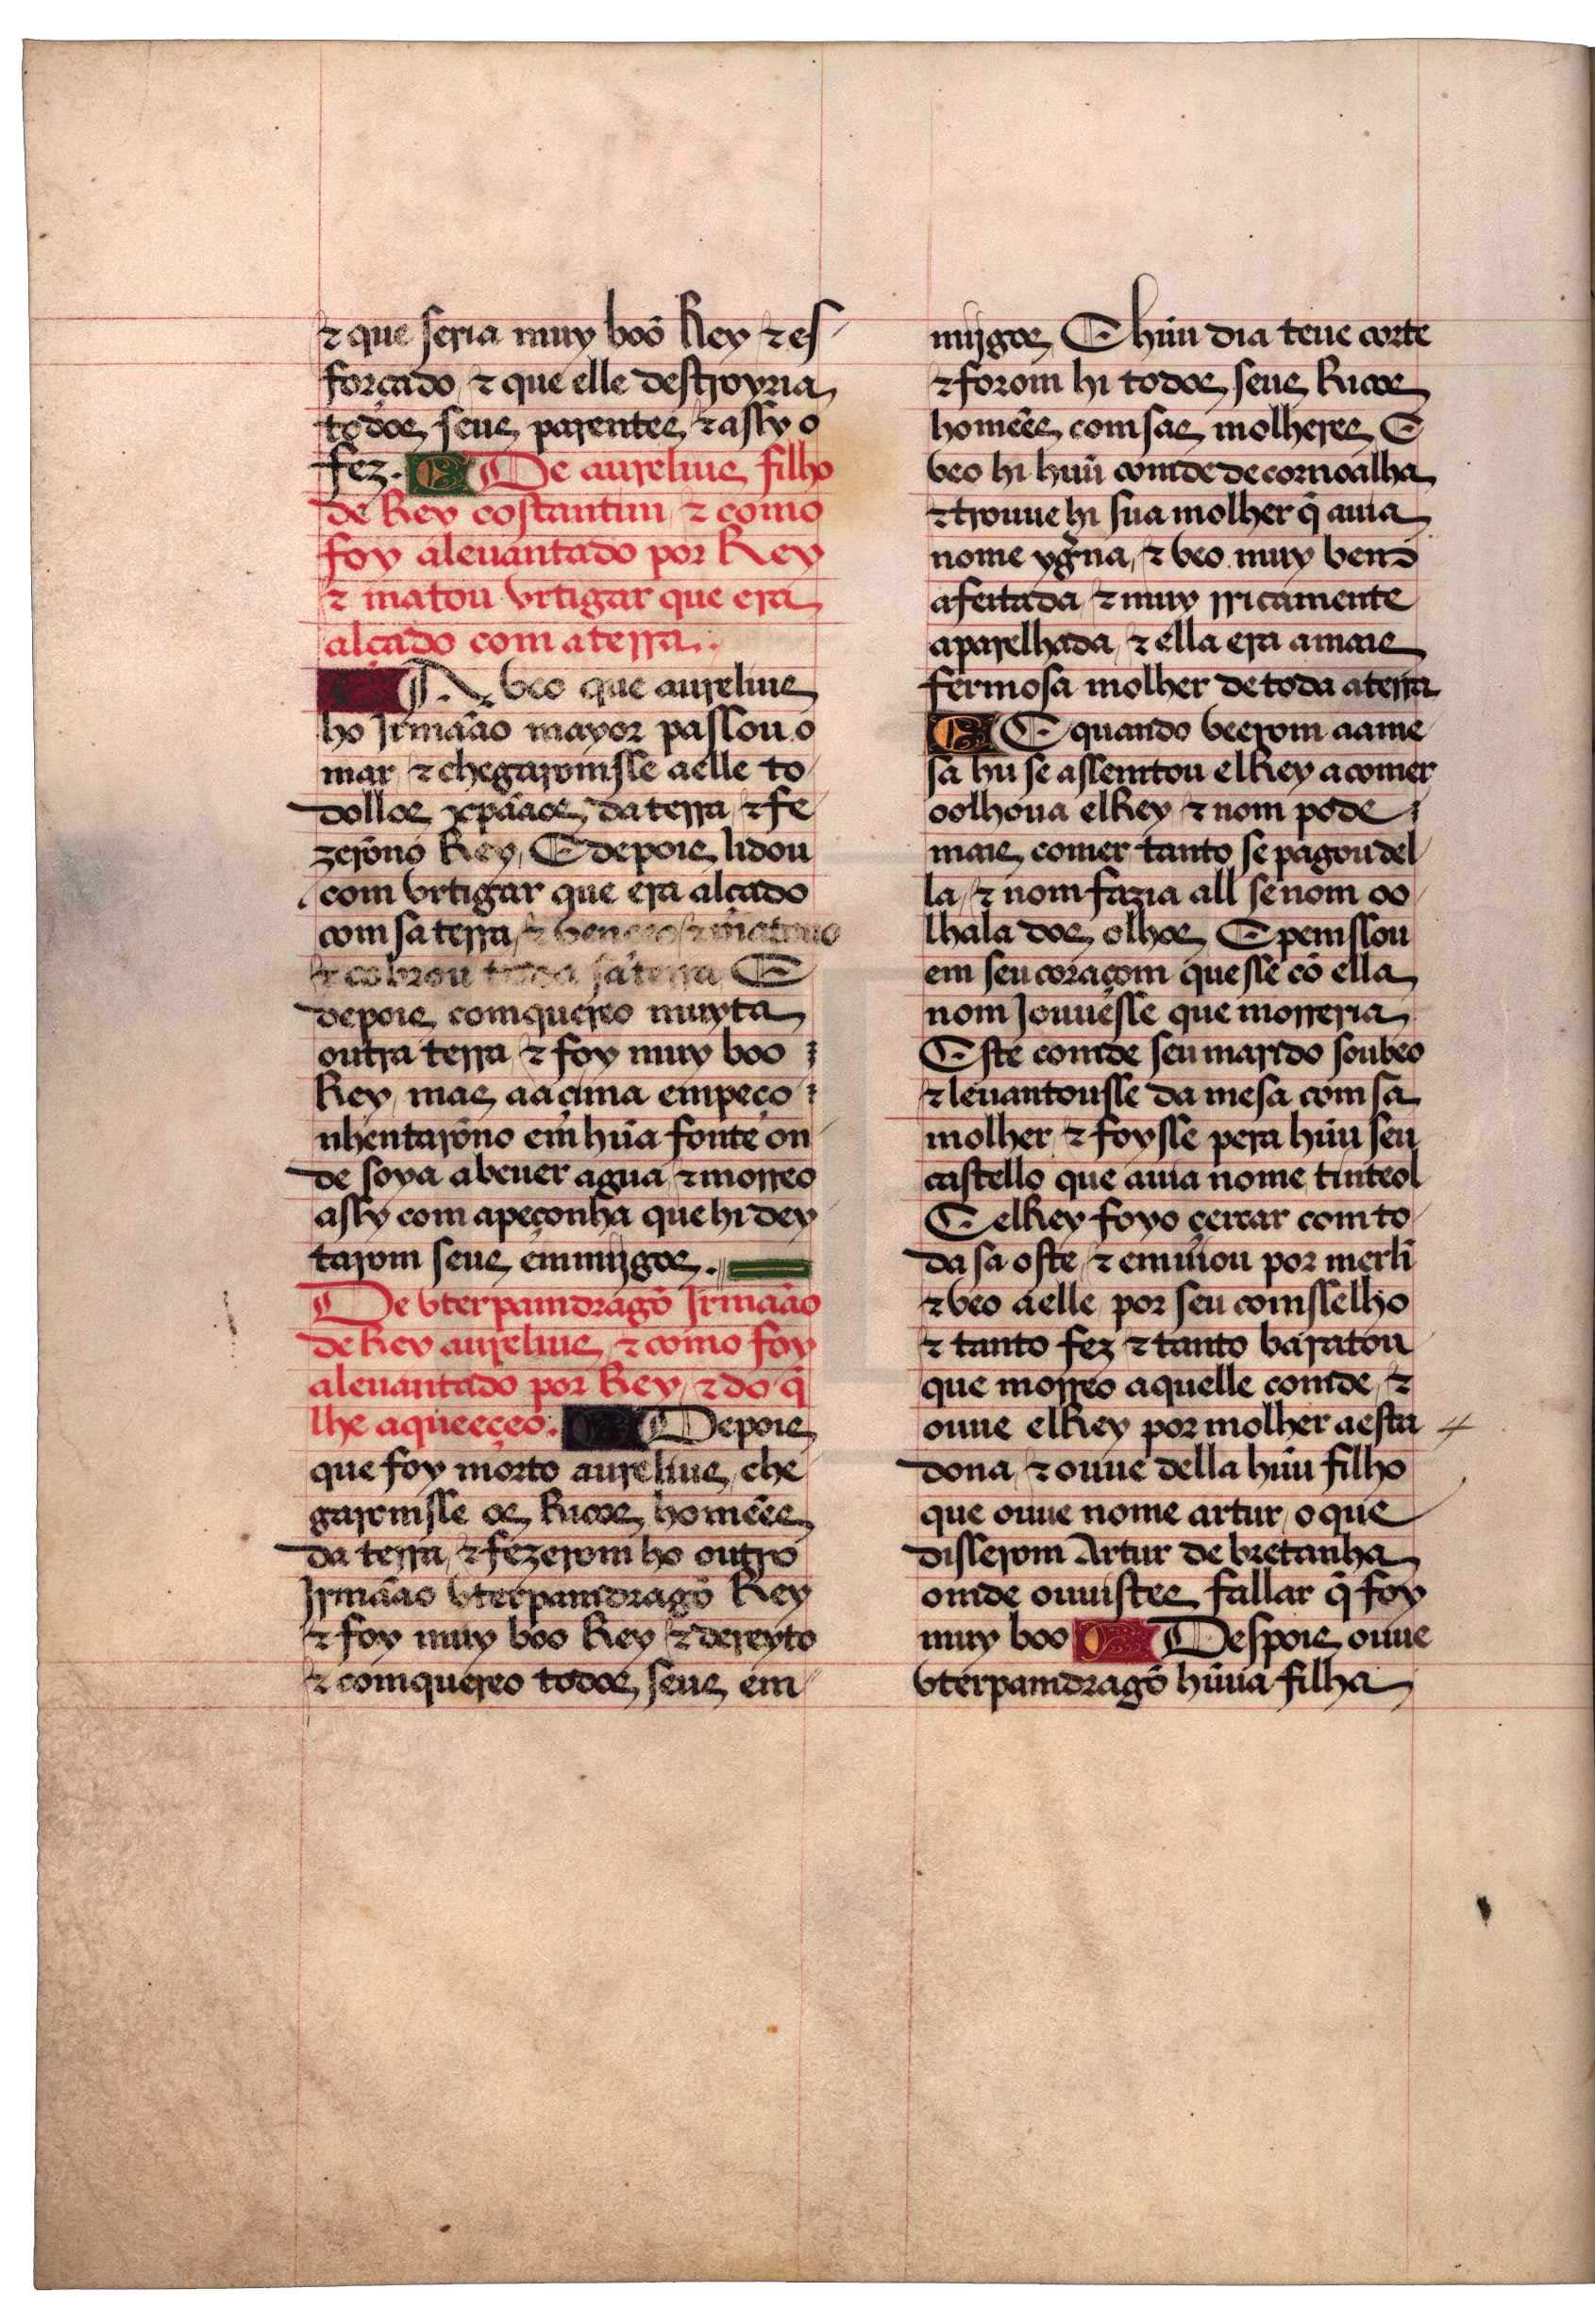 ⁊ que seria muy boõ Rey ⁊ es
forçado ⁊ que elle destroyria
todos seus parentes ⁊ assy o
fez. De aurelius filho
de Rey costantin ⁊ como
foy aleuantado por Rey
⁊ matou vrtigar que era
alçado com a terra.
veo que aurelius
ho Irmaão mayor passou o
mar ⁊ chegaromsse a elle to
dollos xpaãos da terra ⁊ fe
zerõno Rey, E depois lidou
com vrtigar que era alçado
com sa terra, ⁊ venceo ⁊ matouo
⁊ cobrou toda sa terra E
depois comquereo muyta
outra terra ⁊ foy muy boo
Rey, mas aaçima empeço
nhentarõno em hũa fonte on
de soya a beuer agua ⁊ morreo
assy com a peçonha que hi dey
tarom seus emmijgos.
De vterpamdragõ Irmaão
de Rey aurelius ⁊ como foy
aleuantado por Rey, ⁊ do q̃
lhe aqueeçeo. Depois
que foy morto aurelius, che
garomsse os Ricos homẽes
da terra, ⁊ fezerom ho outro
Irmaão vterpamdragõ Rey
⁊ foy muy boo Rey, ⁊ dereyto
⁊ comquereo todos seus em
mijgos, E hũu dia teue corte
⁊ forom hi todos seus Ricos
homẽes com sas molheres E
veo hi hũu comde de cornoalha
⁊ trouue hi sua molher q̃ auia
nome ygrna, ⁊ veo muy bem
afeitada ⁊ muy rricamente
aparelhada, ⁊ ella era a mais
fermosa molher de toda a terra
E quando veerom aa me
sa hu se assemtou elRey a comer
oolhoua elRey ⁊ nom pode
mais comer tanto se pagou del
la, ⁊ nom fazia all se nom oo
lhala dos olhos E pemssou
em seu coraçom que sse cõ ella
nom Jouuesse que morreria
Este comde seu marido soubeo
⁊ leuantousse da mesa com sa
molher ⁊ foysse pera hũu seu
castello que auia nome tinteol
E elRey foyo çercar com to
da sa oste ⁊ emuiou por merlĩ
⁊ veo a elle por seu comsselho
⁊ tanto fez ⁊ tanto baratou
que morreo aquelle comde, ⁊
ouue elRey por molher a esta
dona, ⁊ ouue della hũu filho
que ouue nome artur, o que
disserom Artur de bretanha
omde ouuistes fallar q̃ foy
muy boo Despois ouue
vterpamdragõ hũua filha